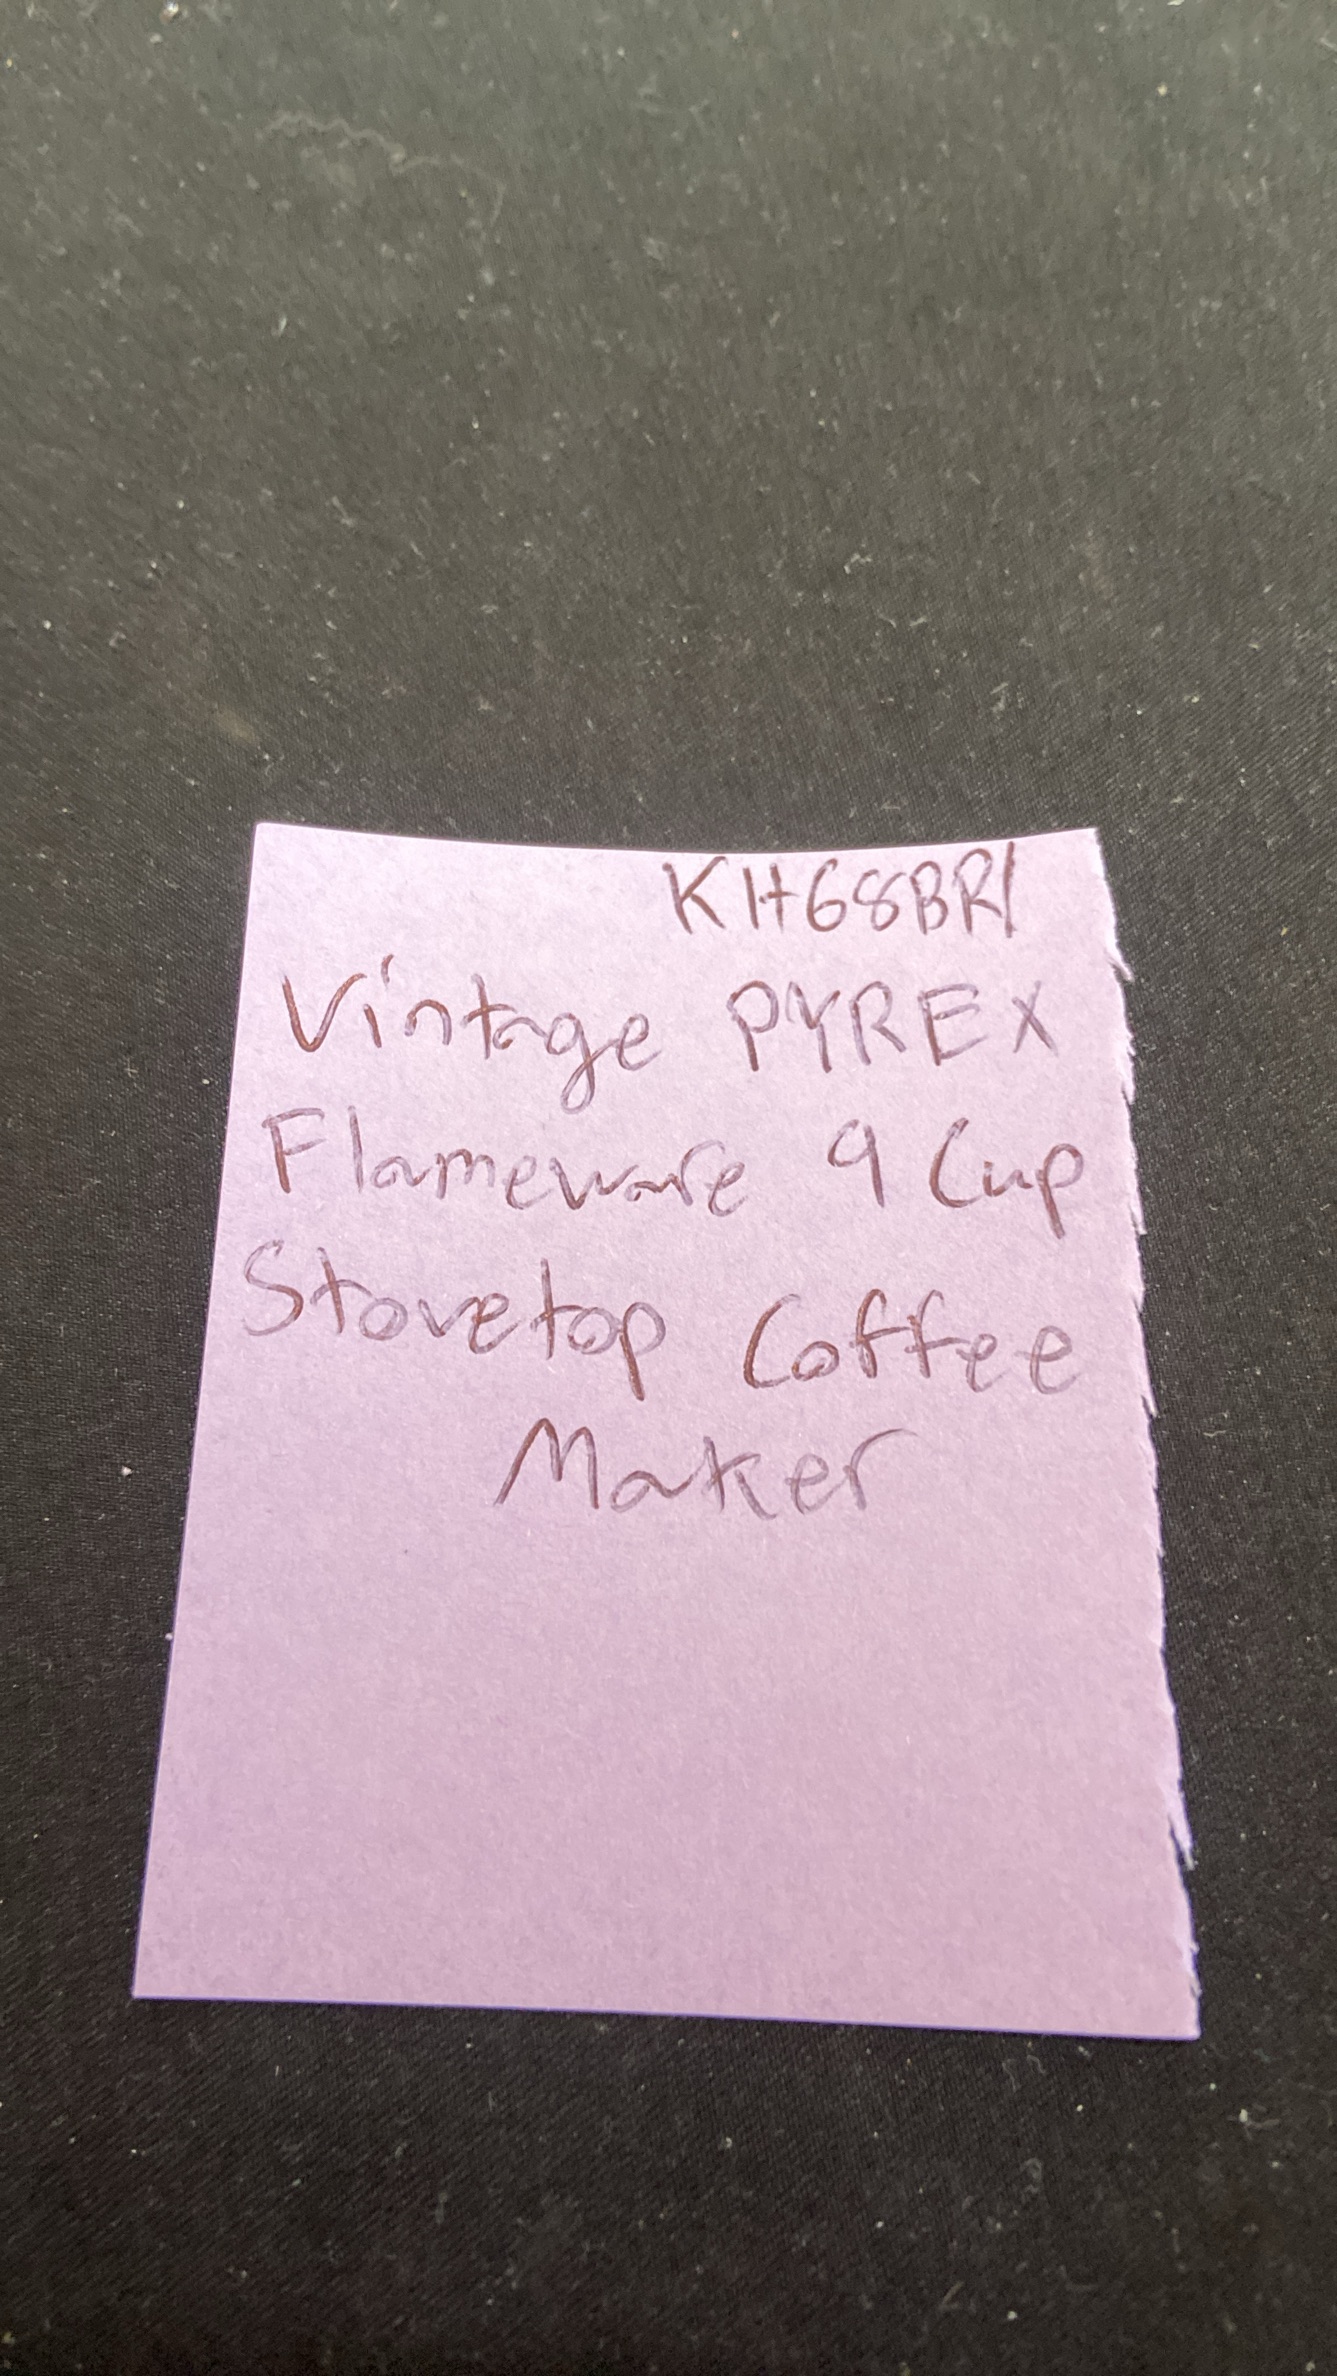 KH68BR1
Vintage PYREX
Flameware 9 Cup
Stovetop Coffee
Maker